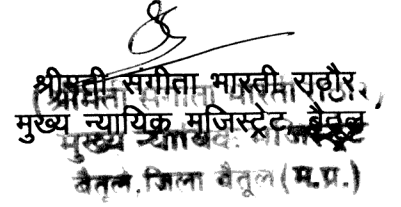 श्रीमती संगीता भारती राठौर,
मुख्य न्यायिक मजिस्ट्रेट, बैतूल
(श्रीमती संगीता भारती
मुख्य न्यायिक मजिस्ट्रेट
बैतूल, जिला बैतूल (म.प्र.)